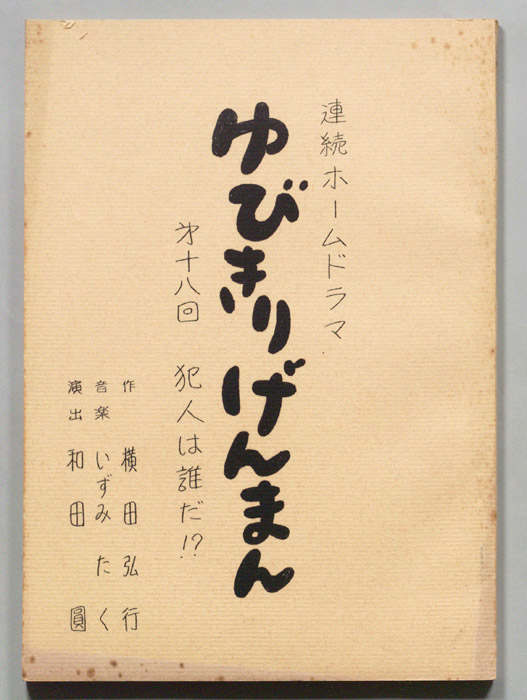 連続ホームドラマ
ゆびきりげんまん
第十八回 犯人は誰だ!?
作 横田弘行
音楽 いずみたく
演出 和田圓